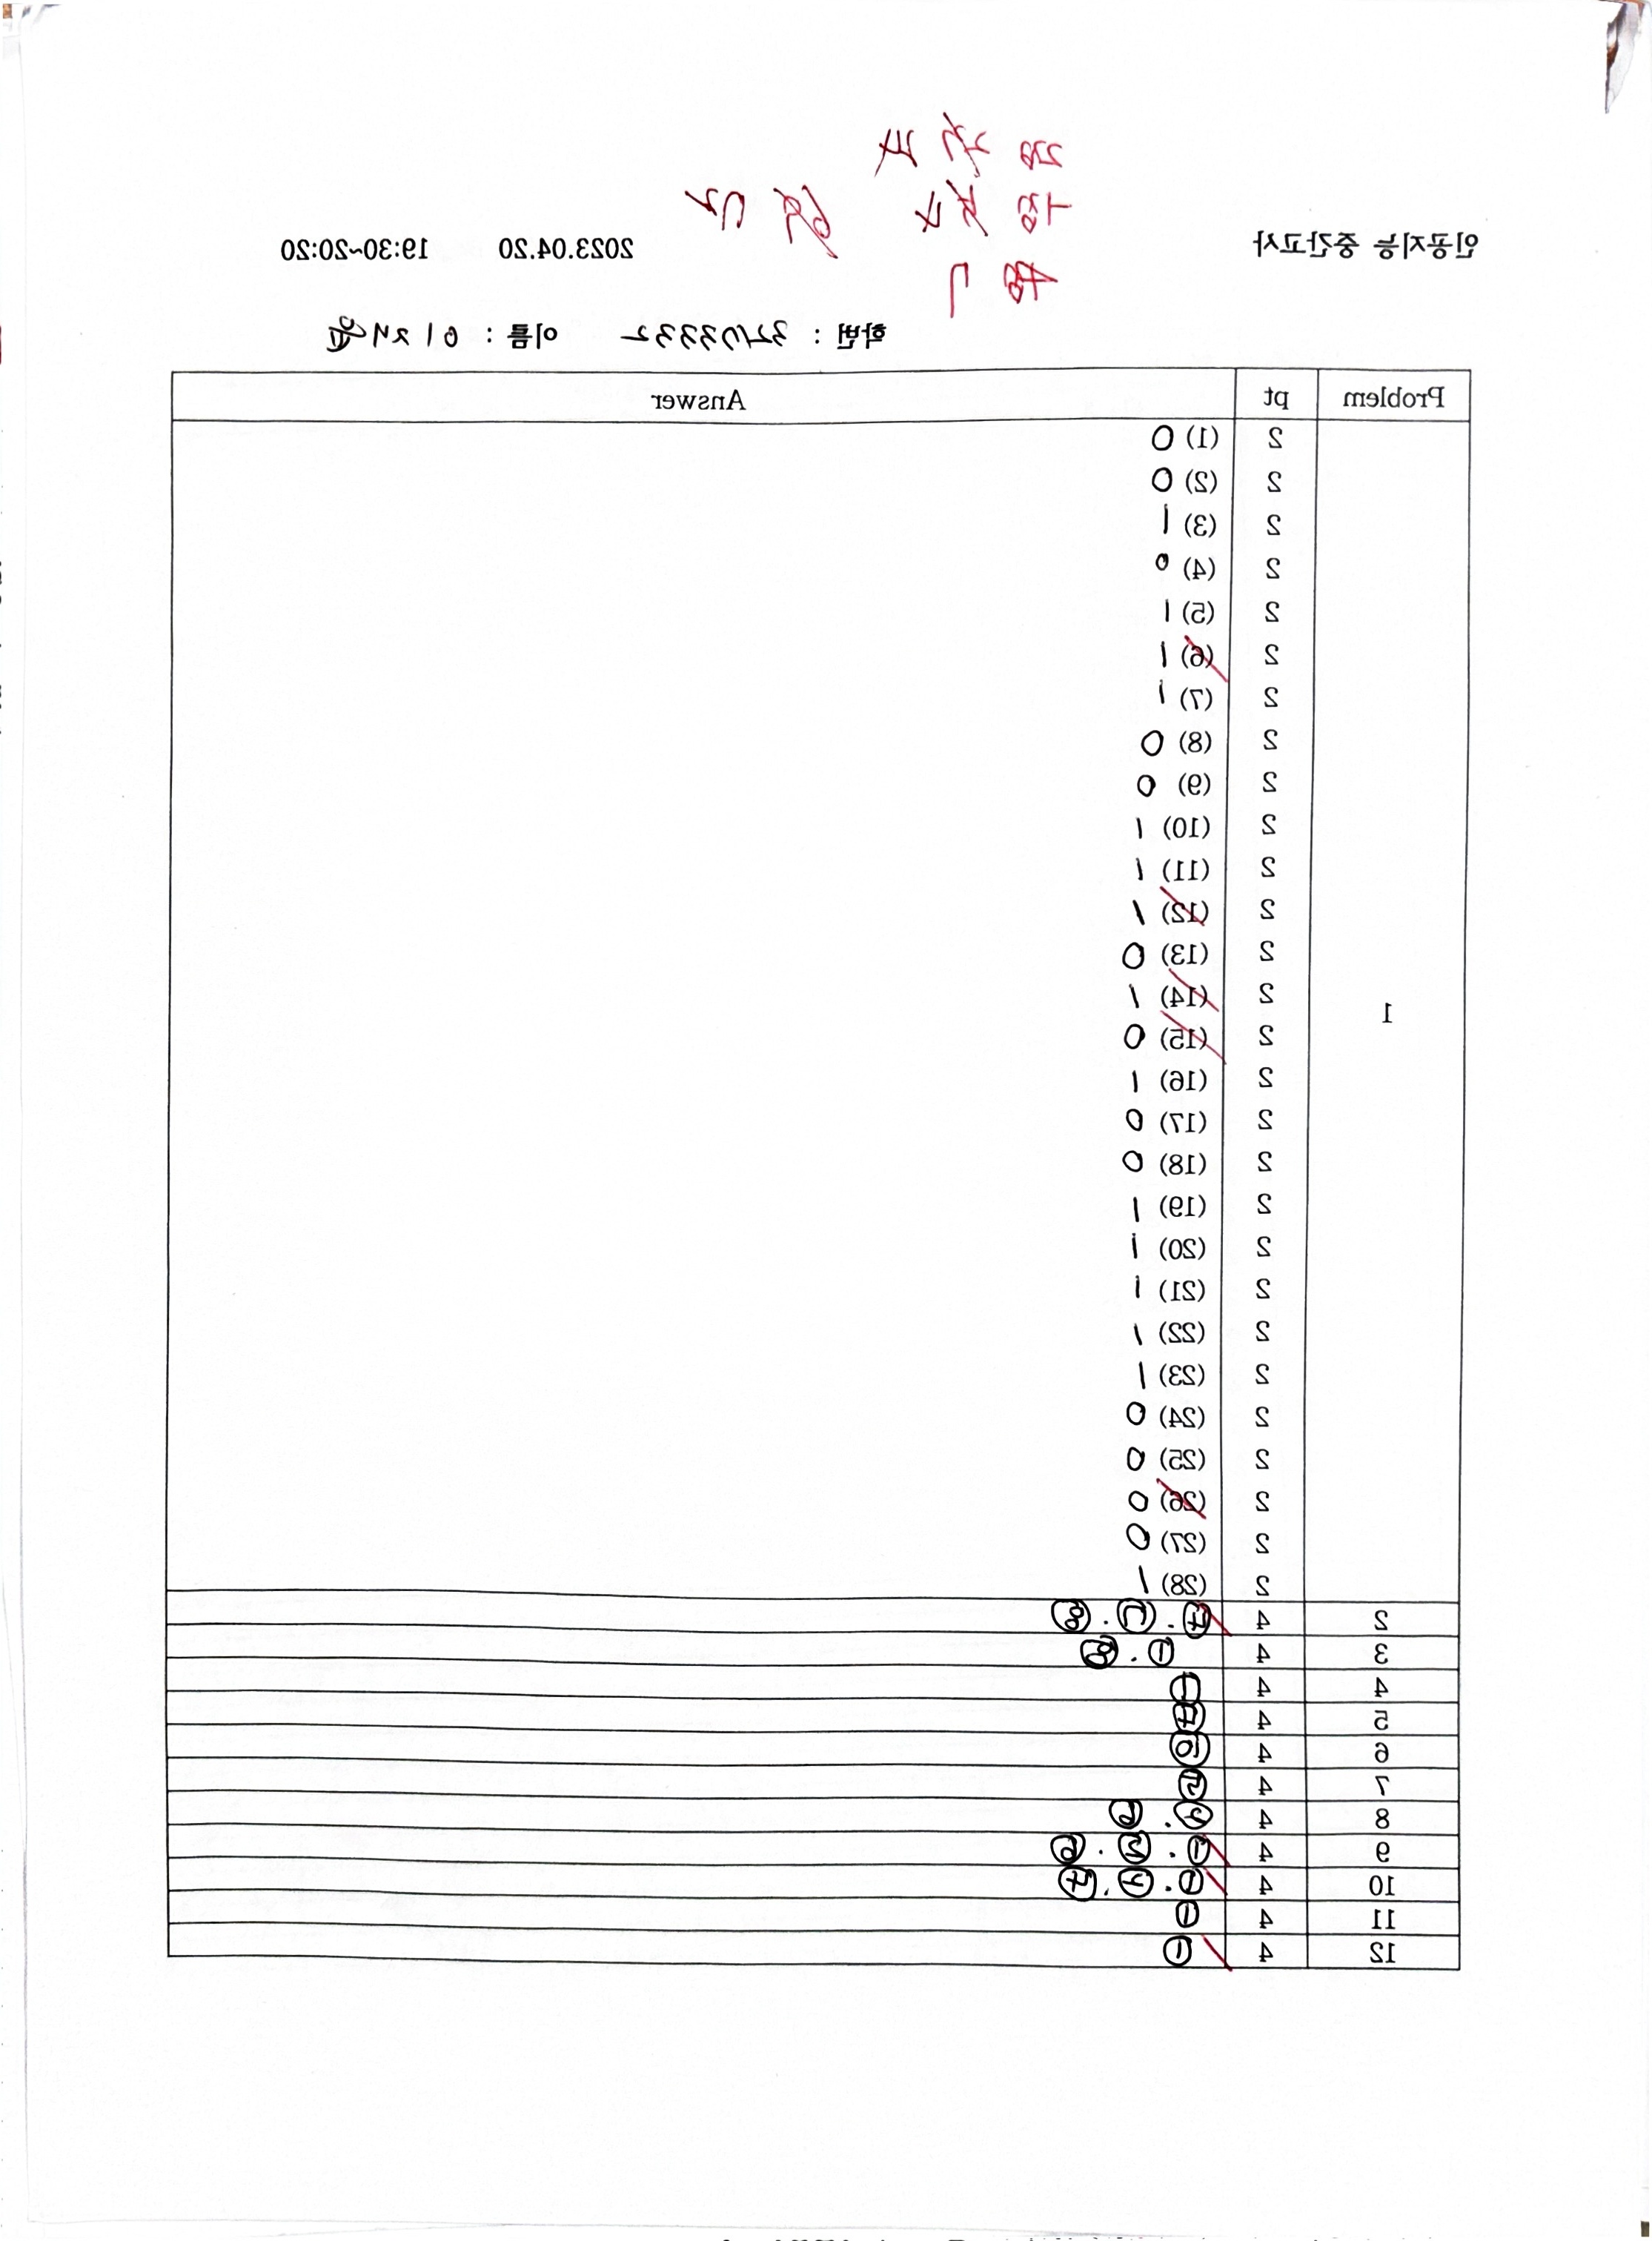 인공지능 중간고사 2023.04.20 19:30~20:20
학번 : 이름 :
Problem pt Answer
1
2 (1) 0
2 (2) 0
2 (3) 1
2 (4) 0
2 (5) 1
2 (6) 1
2 (7) 1
2 (8) 0
2 (9) 0
2 (10) 1
2 (11) 1
2 (12) 1
2 (13) 0
2 (14) 1
2 (15) 0
2 (16) 1
2 (17) 0
2 (18) 0
2 (19) 1
2 (20) 1
2 (21) 1
2 (22) 1
2 (23) 1
2 (24) 0
2 (25) 0
2 (26) 0
2 (27) 0
2 (28) 1
2 4
3 4 ① . ⑧
4 4
5 4
6 4
7 4
8 4
9 4 ①
10 4 ①
11 4 ①
12 4 ①